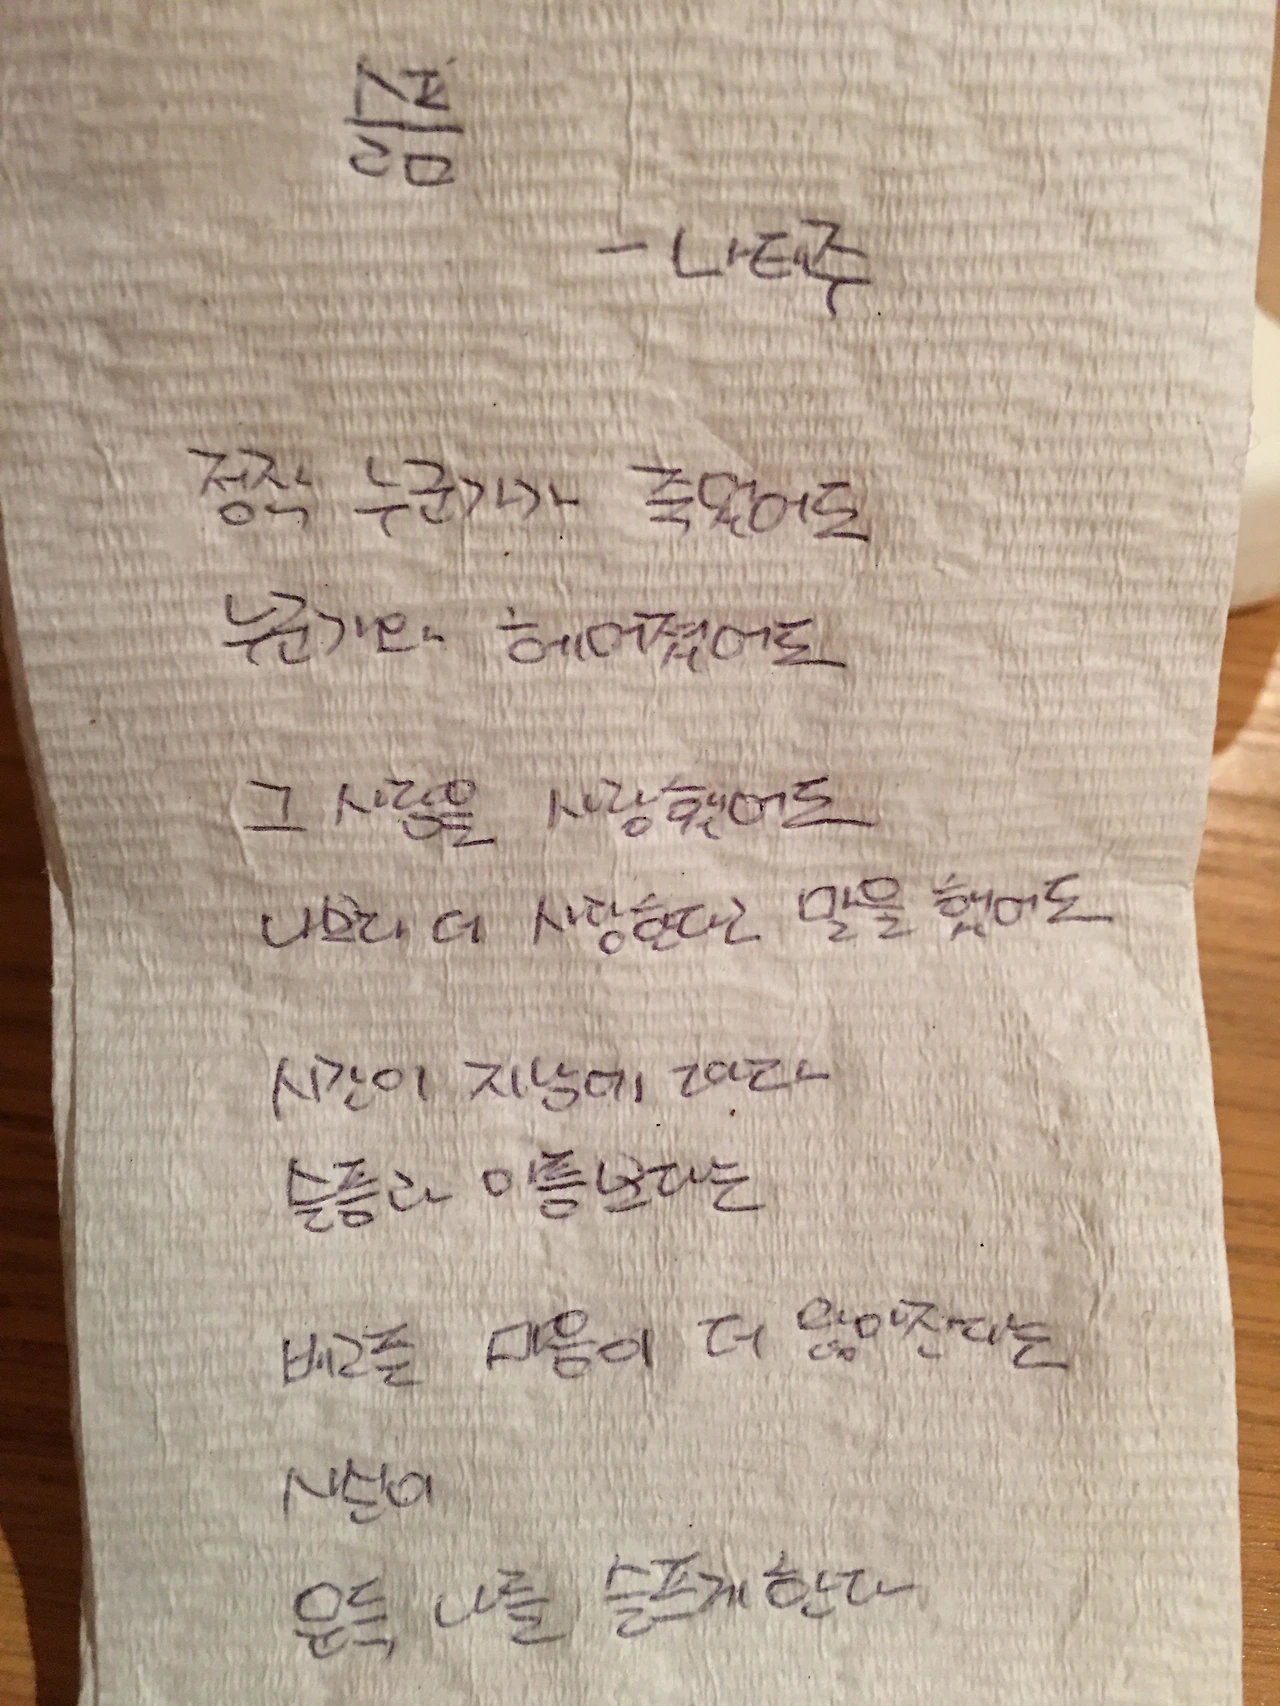 슬픔
- 나태주
정작 누군가가 죽었어도
누군가와 헤어졌어도
그 사람을 사랑했어도
나보다 더 사랑한다고 말을 했어도
시간이 지남에 따라
슬픔과 아픔보다는
배고픈 마음이 더 많아진다는
사실이
문득 나를 슬프게 한다